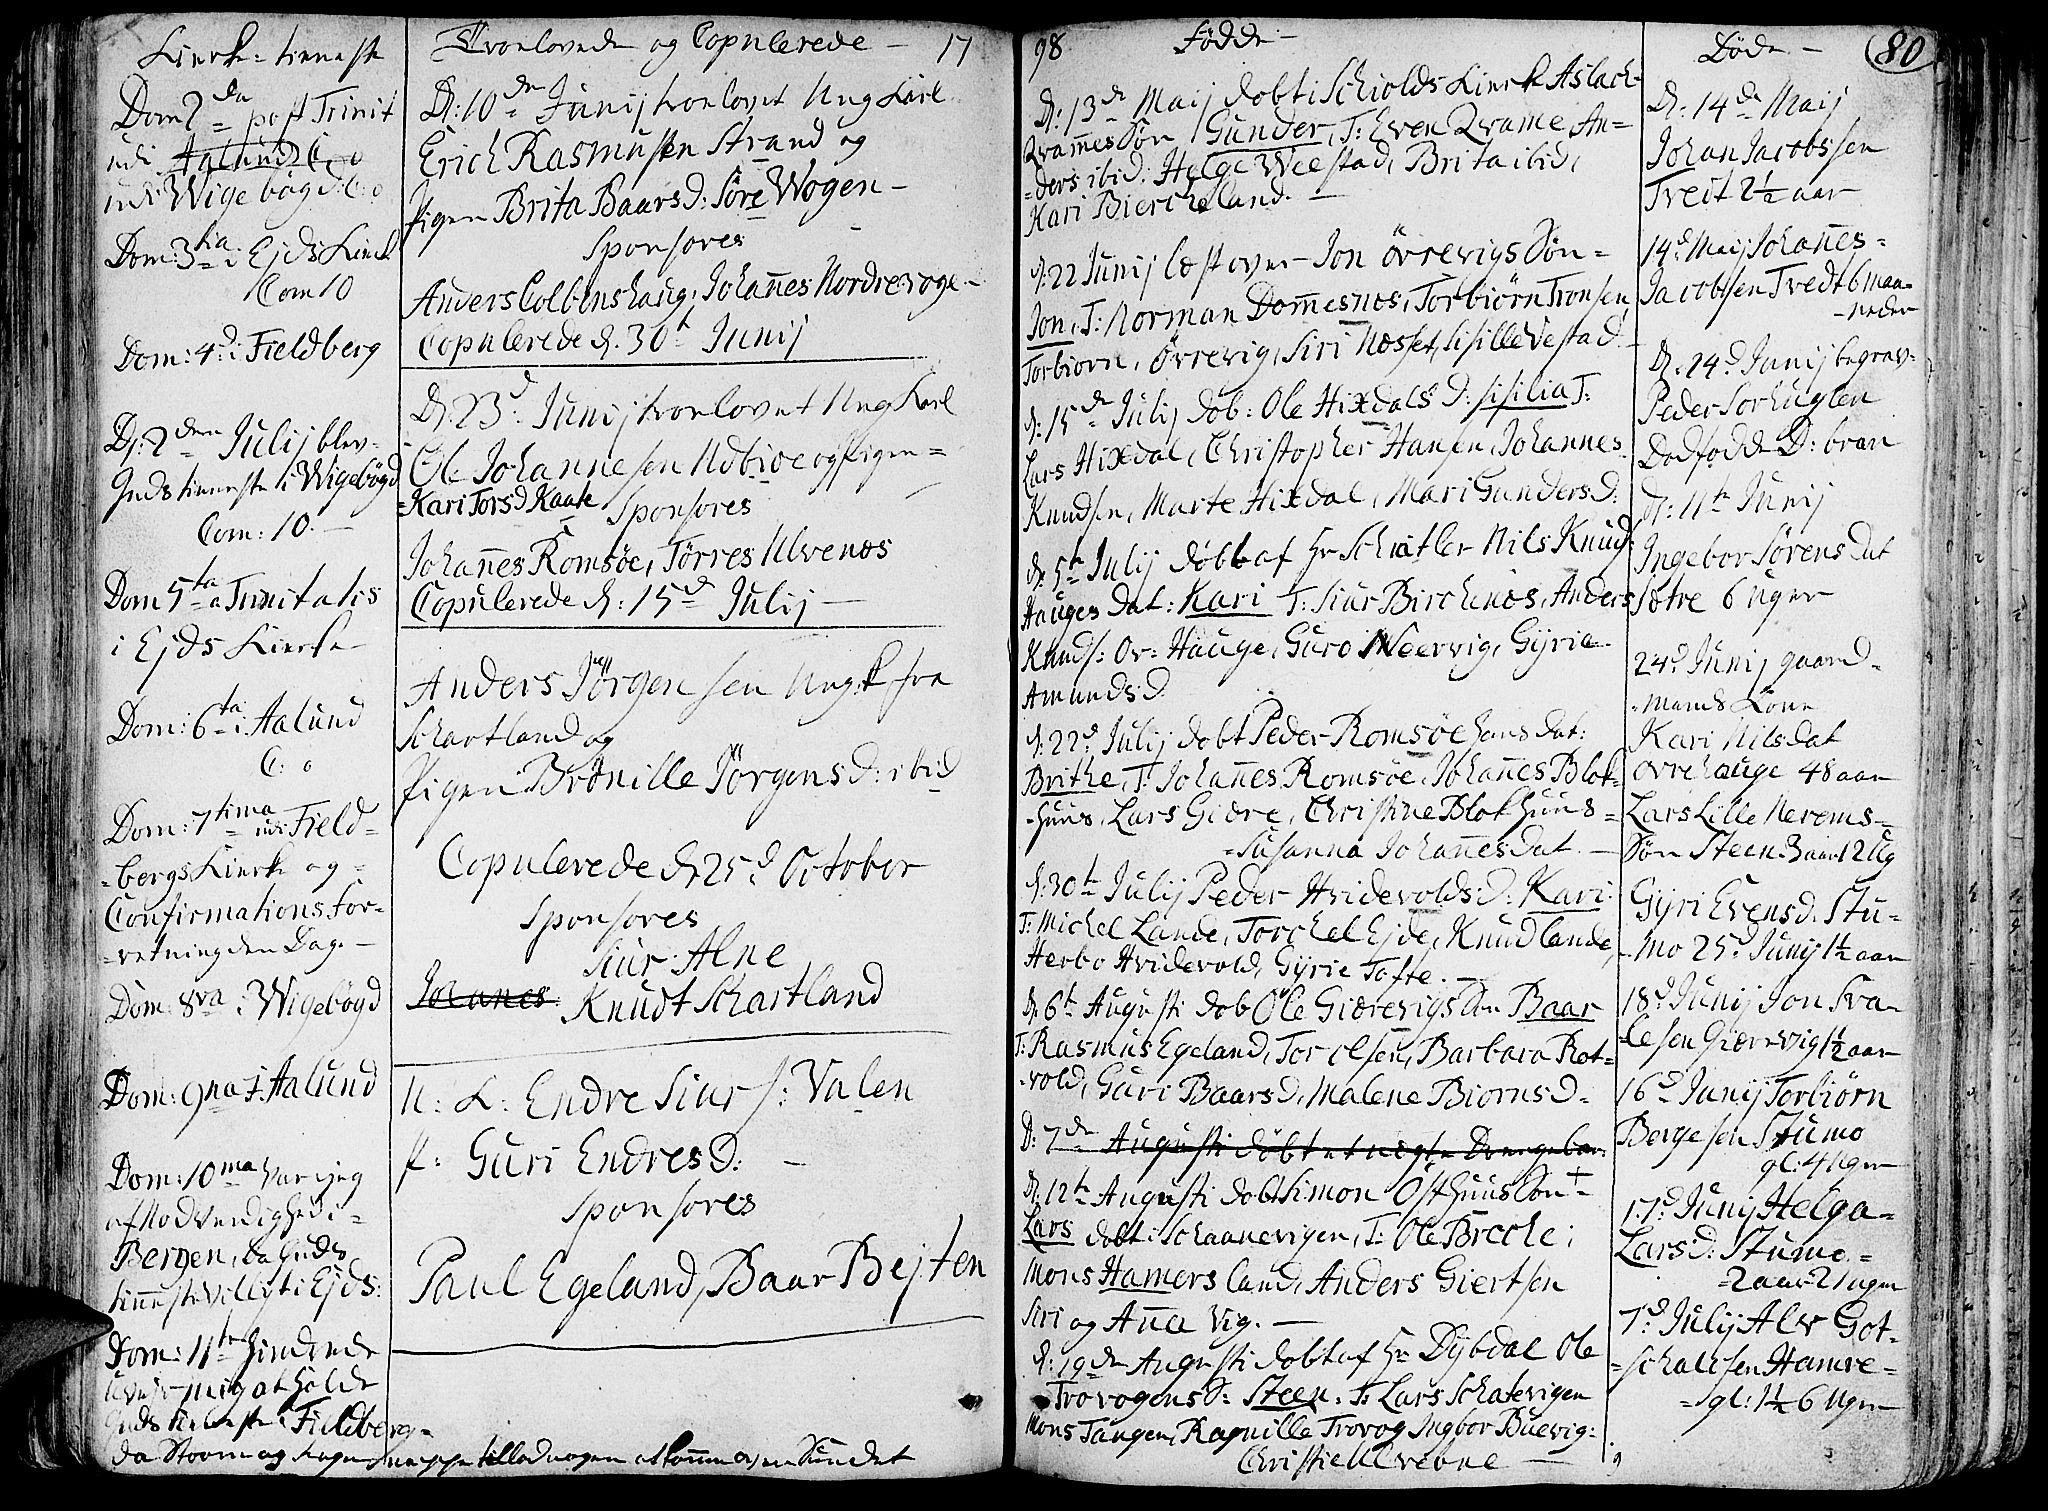 Kierke: tieneste
Dom 2da post Trinit
udi Aalund C: 0
udi Wigebøgd C: 0
Dom: 3tia i Ejds Kierk
Com 10
Dom: 4d i Fieldberg
D: 2den Julij blev
Guds tieneste i Wigebøgd
Com: 10. —
Dom 5ta Trinitatis
i Ejds Kierke
Dom: 6ta i Aalund
C: 0
Dom: 7tima udi Field-
-bergs Kierke og =
Confirmations For-
-retning den Dag. —
Dom: 8va i Wigebøgd
Dom: 9na i Aalund
Dom: 10ma var jeg
af Nødvendighed i =
Bergen, da Guds
tieneste i Ejds:
Dom: 11te hindrede
mig at holde
Guds tieneste i Fieldberg =
da Storm og tillod nogen at komme over Sundet
Trovlovede og Copulerede — 17
D: 10de Junij trovlovet Ung Karl
Erich Rasmusen Strand og
Pigen Brita Baarsd: Søre Wogen —
Sponsores
Anders Colbenshaug, Johannes Nordrevoge —
Copulerede d. 30t Junij
D: 23d Junij trovlovet Ung Karl
Ole Johannesen Udbioe og Pigen =
= Kari Torsd Kaate
Sponsores
Johannes Romsøe, Tørres Ulvenos
Copulerede d: 15d Julij —
Anders Jörgensen Ung: k fra
Schartland og
Pigen Brönille Jörgensd: ibid
Copulerede d 25d October
Sponsores
Siur Alne
Johanes Knudt Schartland
U: K: Endre Siurs: Valen
P: Guri Endresd: —
Sponsores
Paul Egeland, Baar Bejten
98 Fødde —
D: 13d Maij døbt i Schiolds Kierk Aslach
Qvamnes Søn Gunder, T: Even Qvame, An=
=ders ibid: Helge Weestad, Brita ibid,
Kari Biercheland. —
d: 22 Junij læst over Jon Övrevigs Søn =
Jon, T: Norman Domnesnos, Torbiörn Tronsen
Torbiorn, Övrevig, Siri Nosset, Sisille Vestad —
d: 15de Julij døb: Ole Hixdals D: Sisilia T:
Lars Hixdal, Christopher Hansen, Johannes
Knudsen, Marte Hixdal, Mari Gundersd:
d. 5t Julij døbt af Hr Schatler Nils Knud
Hauges dat: Kari T: Siur Birchenos, Anders
Knuds: ov: Hauge, Guro Neervig, Gyria
Amundsd.
d: 22d Julij døbt Peder Romsøe hans dat:
Brithe, T: Johannes Romsøe, Johannes Blok-
-huus, Lars Giære, Christine Blokhuus =
=Susanna Johannesdat. —
d: 30t Julij Peder Hvidevoldsd: Kari.
T: Michel Lande, Torchel Ejde, Knud Lande,
Herbo Hvidevold, Gyrie Tofte. —
d 6t Augusti døb Ole Gierevigs Søn Baar
T: Rasmus Egeland, Tor Olsen, Barbara Rot-
-vold, Guri Baarsd, Malene Biornsd =
D: 7de Augusti døbt et uægte
d. 12t Augusti døbt Simon Östhuus Søn
Lars døbt i Schaanevigen, T: Ole Breche;
Mons Hamersland, Anders Giertsen
Siri og Anna Vig. —
d: 19de Augusti døbt af Hr Dybdal Ole
Trovogens S: Steen. T: Lars Schatevigen
Mons Tangen, Ragnille Trovog Ingbor Buevig:
Christie Ulvebne —
Døde — 80
D: 14d Maij
Johan Jacobsen
Tvedt 2½ aar
14d Maij Johannes =
Jacobsen Tvedt 6 maa=
=neder
D. 24d Junij begrav=
Peder Sorhuglen
Dødfødde D: bran
d: 11te Junij
Ingebor Sørens dat
Sætre 6 Uger
24d Junij gaard=
=mands Kone
Kari Nilsdat
övrehauge 48 aar
Lars Lille Nerems=
Søn Steen 3 aar 12 Ug
Gyri Evensd. Stu=
-mo 25d Junij 1½ aar
18d Junij Jon Sva-
lesen Giærevig 1½ aar
16d Junij Torbiörn
Bergesen Stumo
gl: 4 Uger
17d Junij Helga =
Larsd: Stumo. =
= 2 aar 21 uger
7d: Julij Alv Got-
=schalchsen Hamre =
= gl: 1½ 6 Uger